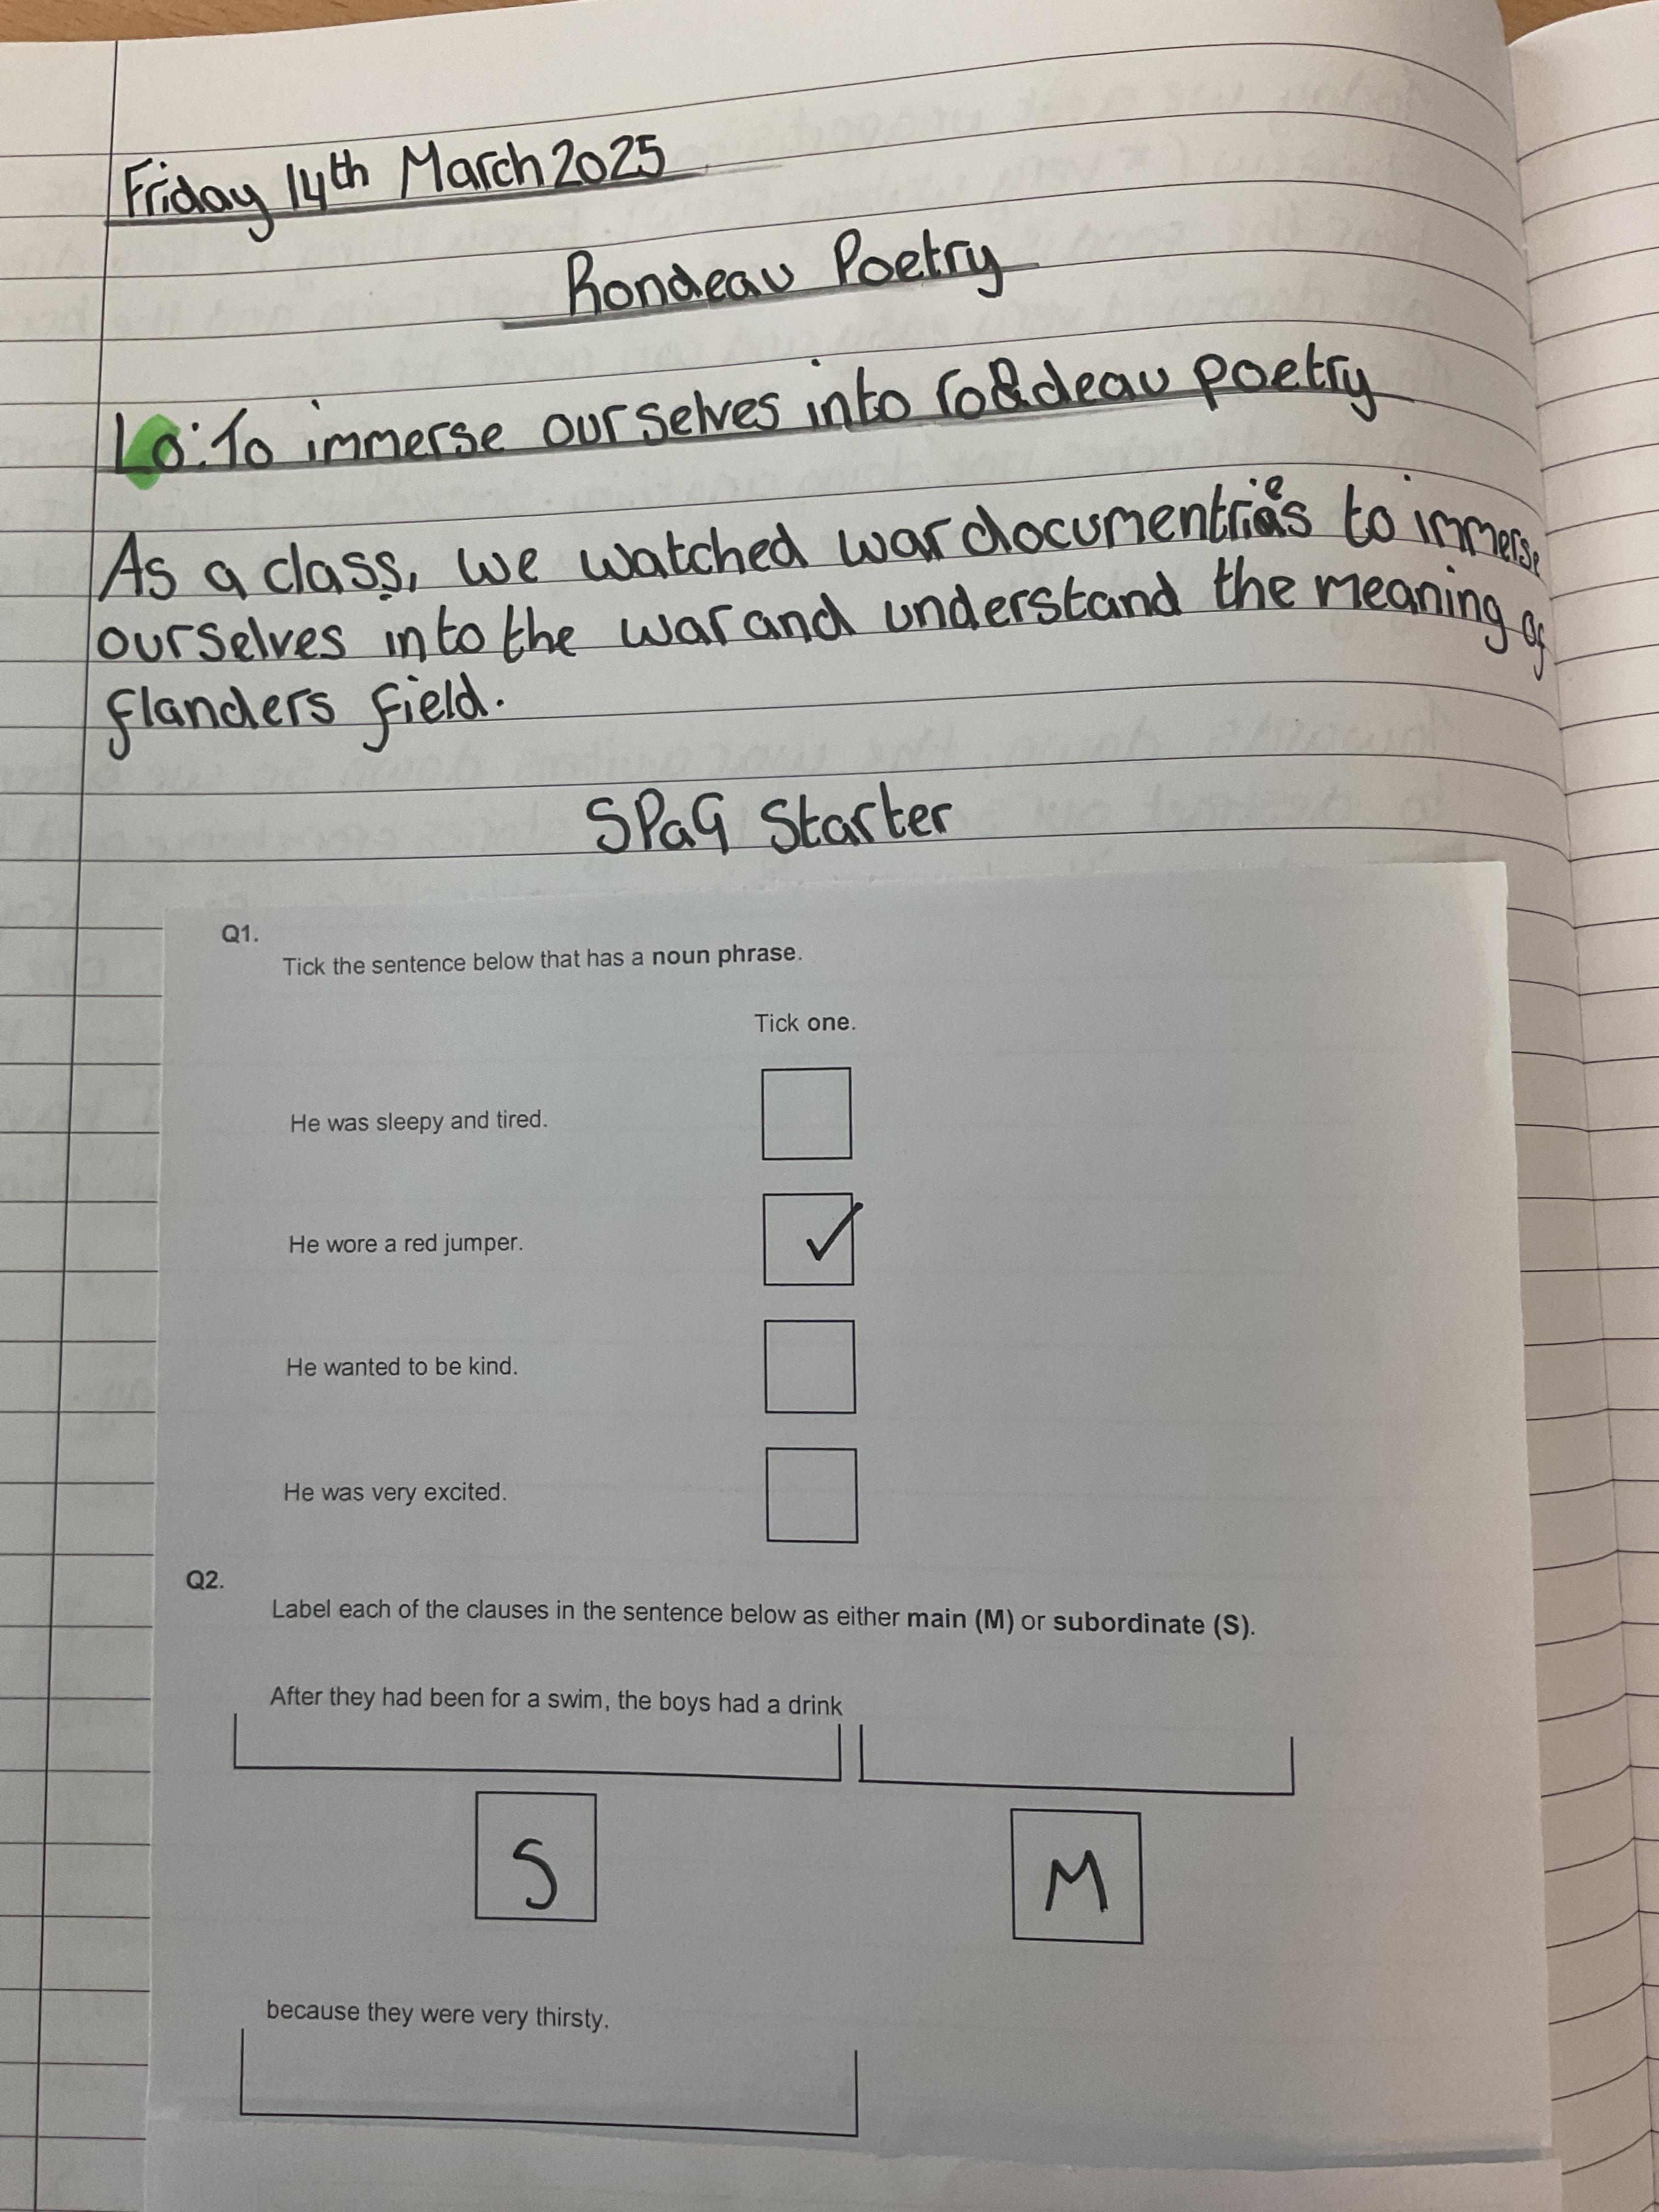 Friday 14th March 2025
Rondeau Poetry
Lo: To immerse ourselves into rondeau poetry
As a class, we watched war documentries to immerse
ourselves into the war and understand the meaning of
flanders field.
SPaG Starter
Q1.
Tick the sentence below that has a noun phrase.
Tick one.
He was sleepy and tired.
He wore a red jumper. ✓
He wanted to be kind.
He was very excited.
Q2.
Label each of the clauses in the sentence below as either main (M) or subordinate (S).
After they had been for a swim, the boys had a drink
S M
because they were very thirsty.